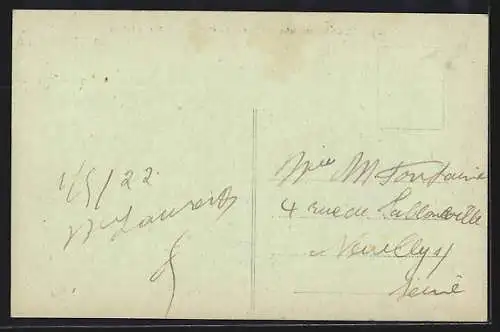 1/5/22
Laurent
Mlle M Fontaine
4 rue de Sablonville
a Neuilly s/
Seine